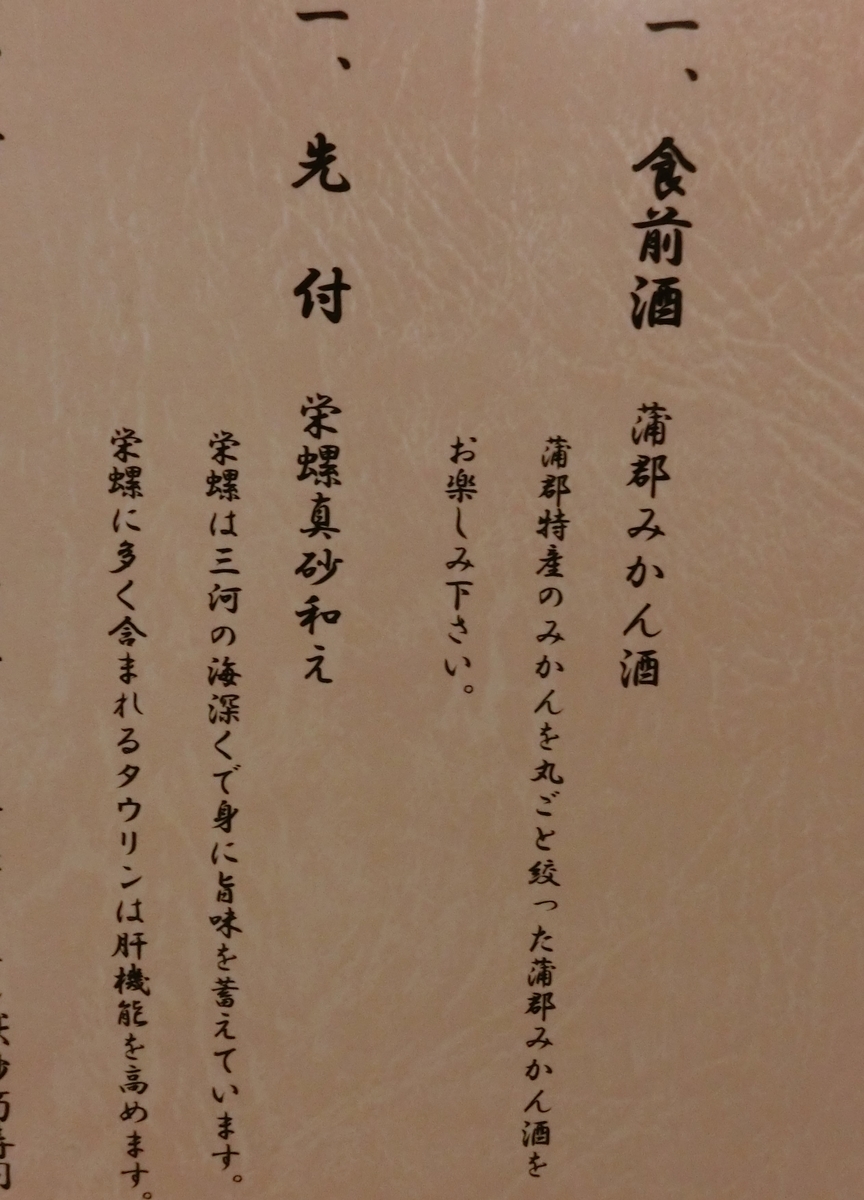 一、食前酒 蒲郡みかん酒
蒲郡特産のみかんを丸ごと絞った蒲郡みかん酒を
お楽しみ下さい。
一、先付 栄螺真砂和え
栄螺は三河の海深くで身に旨味を蓄えています。
栄螺に多く含まれるタウリンは肝機能を高めます。